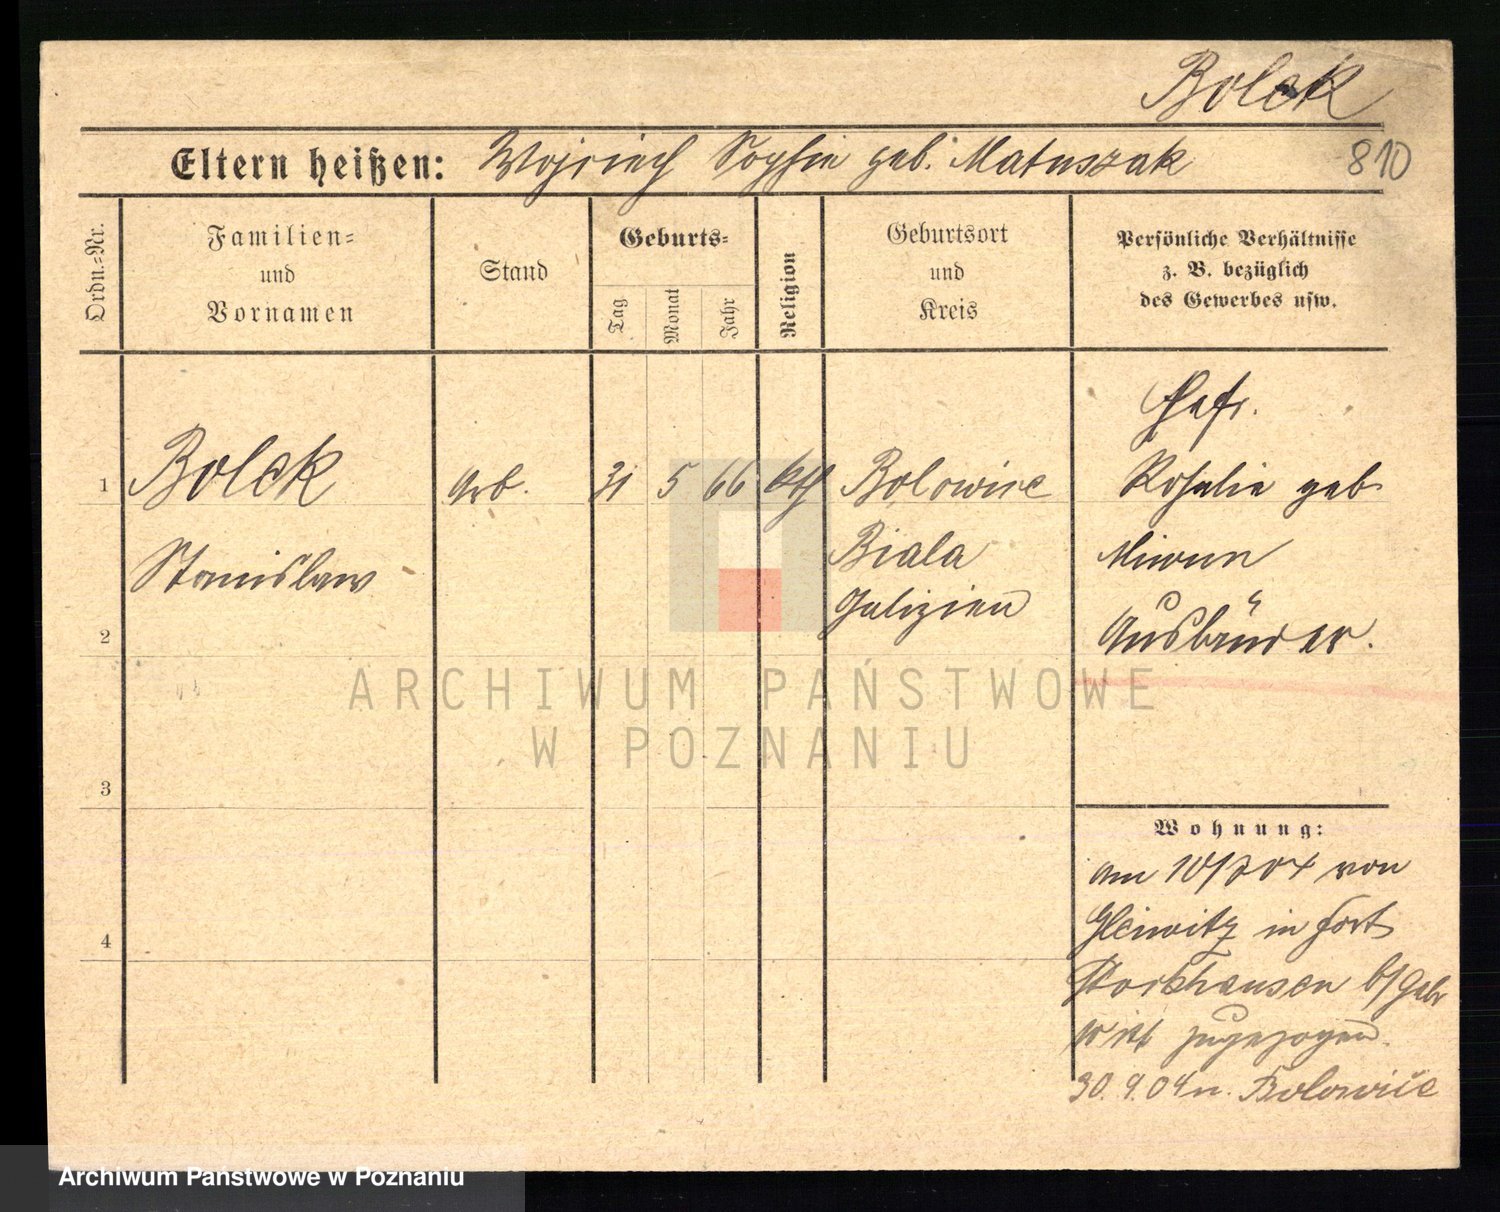 Bolek
Eltern heißen: Wojciech Sophie geb. Matuszak
810
Ordn.=Nr.
Familien=
und
Vornamen
Stand
Geburts=
Tag
Monat
Jahr
Religion
Geburtsort
und
Kreis
Persönliche Verhältnisse
z. B. bezüglich
des Gewerbes usw.
Ehefr.
1 Bolek Arb. 31 5 66 kth Bolowice Rosalie geb
Stanislaw Biala
Galizien
Ausländer.
2
3
4
Wohnung:
am von
Gleiwitz in Fort
zugezogen.
30.9.04 n. Bolowice
ARCHIWUM PAŃSTWOWE
W POZNANIU
Archiwum Państwowe w Poznaniu